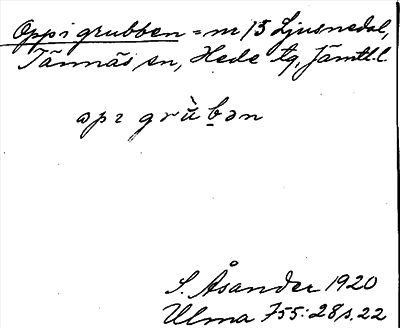 Oppi grubben = nr 13 Ljusnedal,
Tännäs sn, Hede tg, Jämtl. l.
əpɪ grù̀b̠ən
S. Åsander 1920
Ulma 755:28, s. 22